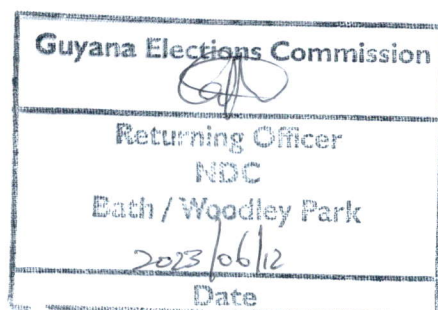 Guyana Elections Commission
Returning Officer
NDC
Bath / Woodley Park
2023/06/12
Date